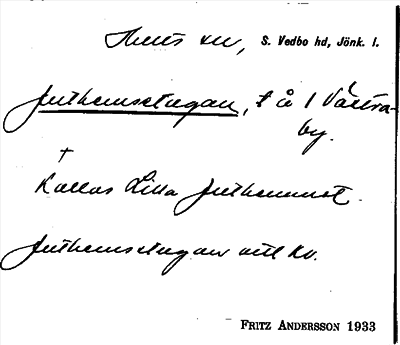 Hults sn, S. Vedbo hd, Jönk. l.
Juthemsstugan, t å 1 Västra-
by.
†
Kallas Lilla Juthemmet.
Juthemsstugan vill ko.
FRITZ ANDERSSON 1933